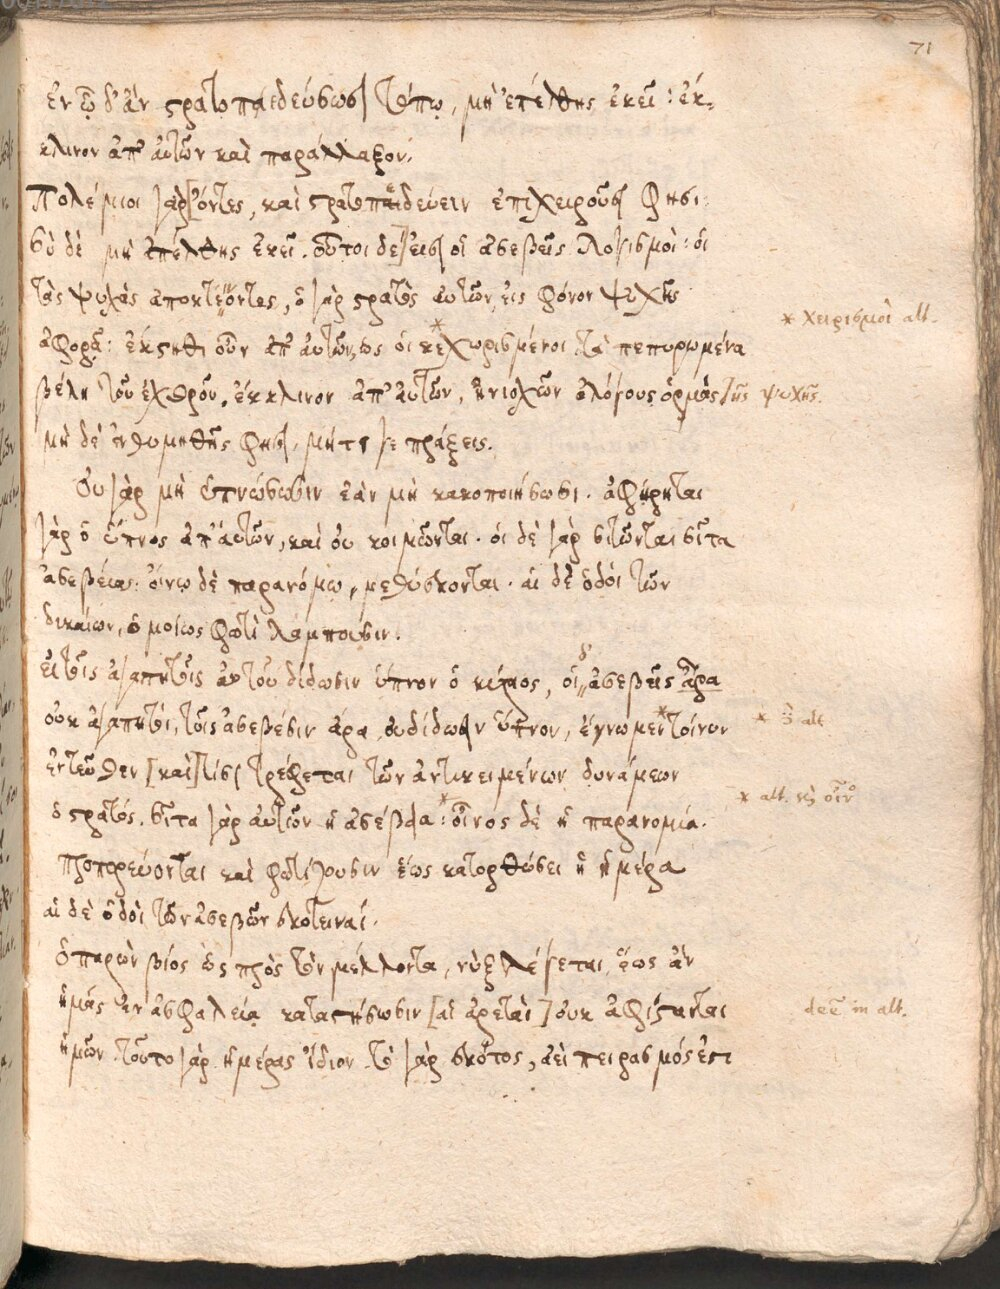 71
ἐν ᾧ δ' ἂν στρατοπαεδεύσωσι τόπῳ, μὴ ἐπέλθῃς ἐκεῖ: ἔκ-
κλινον ἀπ' αὐτῶν καὶ παράλλαξον.
Πολέμιοι γὰρ [ὄντες, καὶ στρατοπεδεύειν ἐπιχειροῦσι φησι:
σὺ δὲ μὴ ἀπέλθῃς ἐκεῖ. οὗτοι δε] εἰσι οἱ ἀσεβεῖς λογισμοί: οἱ
τὰς ψυχὰς ἀποκτένοντες, ὁ γὰρ στρατὸς αὐτῶν, εἰς φόνον ψυχῆς
* χειρισμοὶ alt.
ἀφορᾷ: ἔκστηθι οὖν ἀπ' αὐτῶν, ὡς οἱ κεχωρισμένοι * τὰ πεπυρωμένα
βέλη τοῦ ἐχθροῦ. ἔκκλινον ἀπ' αὐτῶν, ἡνιοχῶν ἀλόγους ὁρμὰς τῆς ψυχῆς.
μὴ δὲ ἐνθυμηθῇς φησι, μήτι γε πράξεις.
Οὐ γὰρ μὴ ὑπνώσωσιν ἐὰν μὴ κακοποιήσωσι. ἀφῄρηται
γὰρ ὁ ὕπνος ἀπ' αὐτῶν, καὶ οὐ κοιμῶνται. οἱ δὲ γὰρ σιτῶνται σῖτα
ἀσεβείας: οἴνῳ δὲ παρανόμῳ, μεθύσκονται. αἱ δὲ ὁδοὶ τῶν
δικαίων, ὁμοίως φωτὶ λάμπουσιν.
εἰ τοῖς ἀγαπητοῖς αὐτοῦ δίδωσιν ὕπνον ὁ κύριος, οἱ δ ἀσεβεῖς ἄρα
οὐκ ἀγαπητοὶ, τοῖς ἀσεβέσιν ἄρα οὐ δίδωσιν ὕπνον, ἔγνωμεν * τοίνυν
* alt
ἐντεῦθεν [καὶ] τίσι τρέφεται τῶν ἀντικειμένων δυνάμεων
* alt.
ὁ στρατός. σῖτα γὰρ αὐτῶν ἡ ἀσέβεια: * οἶνος δὲ ἡ παρανομία.
προπορεύονται καὶ φωτίζουσιν ἕως κατορθώσει ἡ ἡμέρα
αἱ δὲ ὁδοὶ τῶν ἀσεβῶν σκοτειναί.
ὁ παρὼν βίος ὡς πρὸς τὸν μέλλοντα, νὺξ λέγεται, ἕως ἂν
ἡμᾶς ἐν ἀσφαλείᾳ καταστήσωσιν [αἱ ἀρεταὶ] οὐκ ἀφίστανται
in alt.
ἡμῶν. τοῦτο γὰρ ἡμέρας ἴδιον. τὸ γὰρ σκότος, ἀεὶ πειρασμός ἐστι